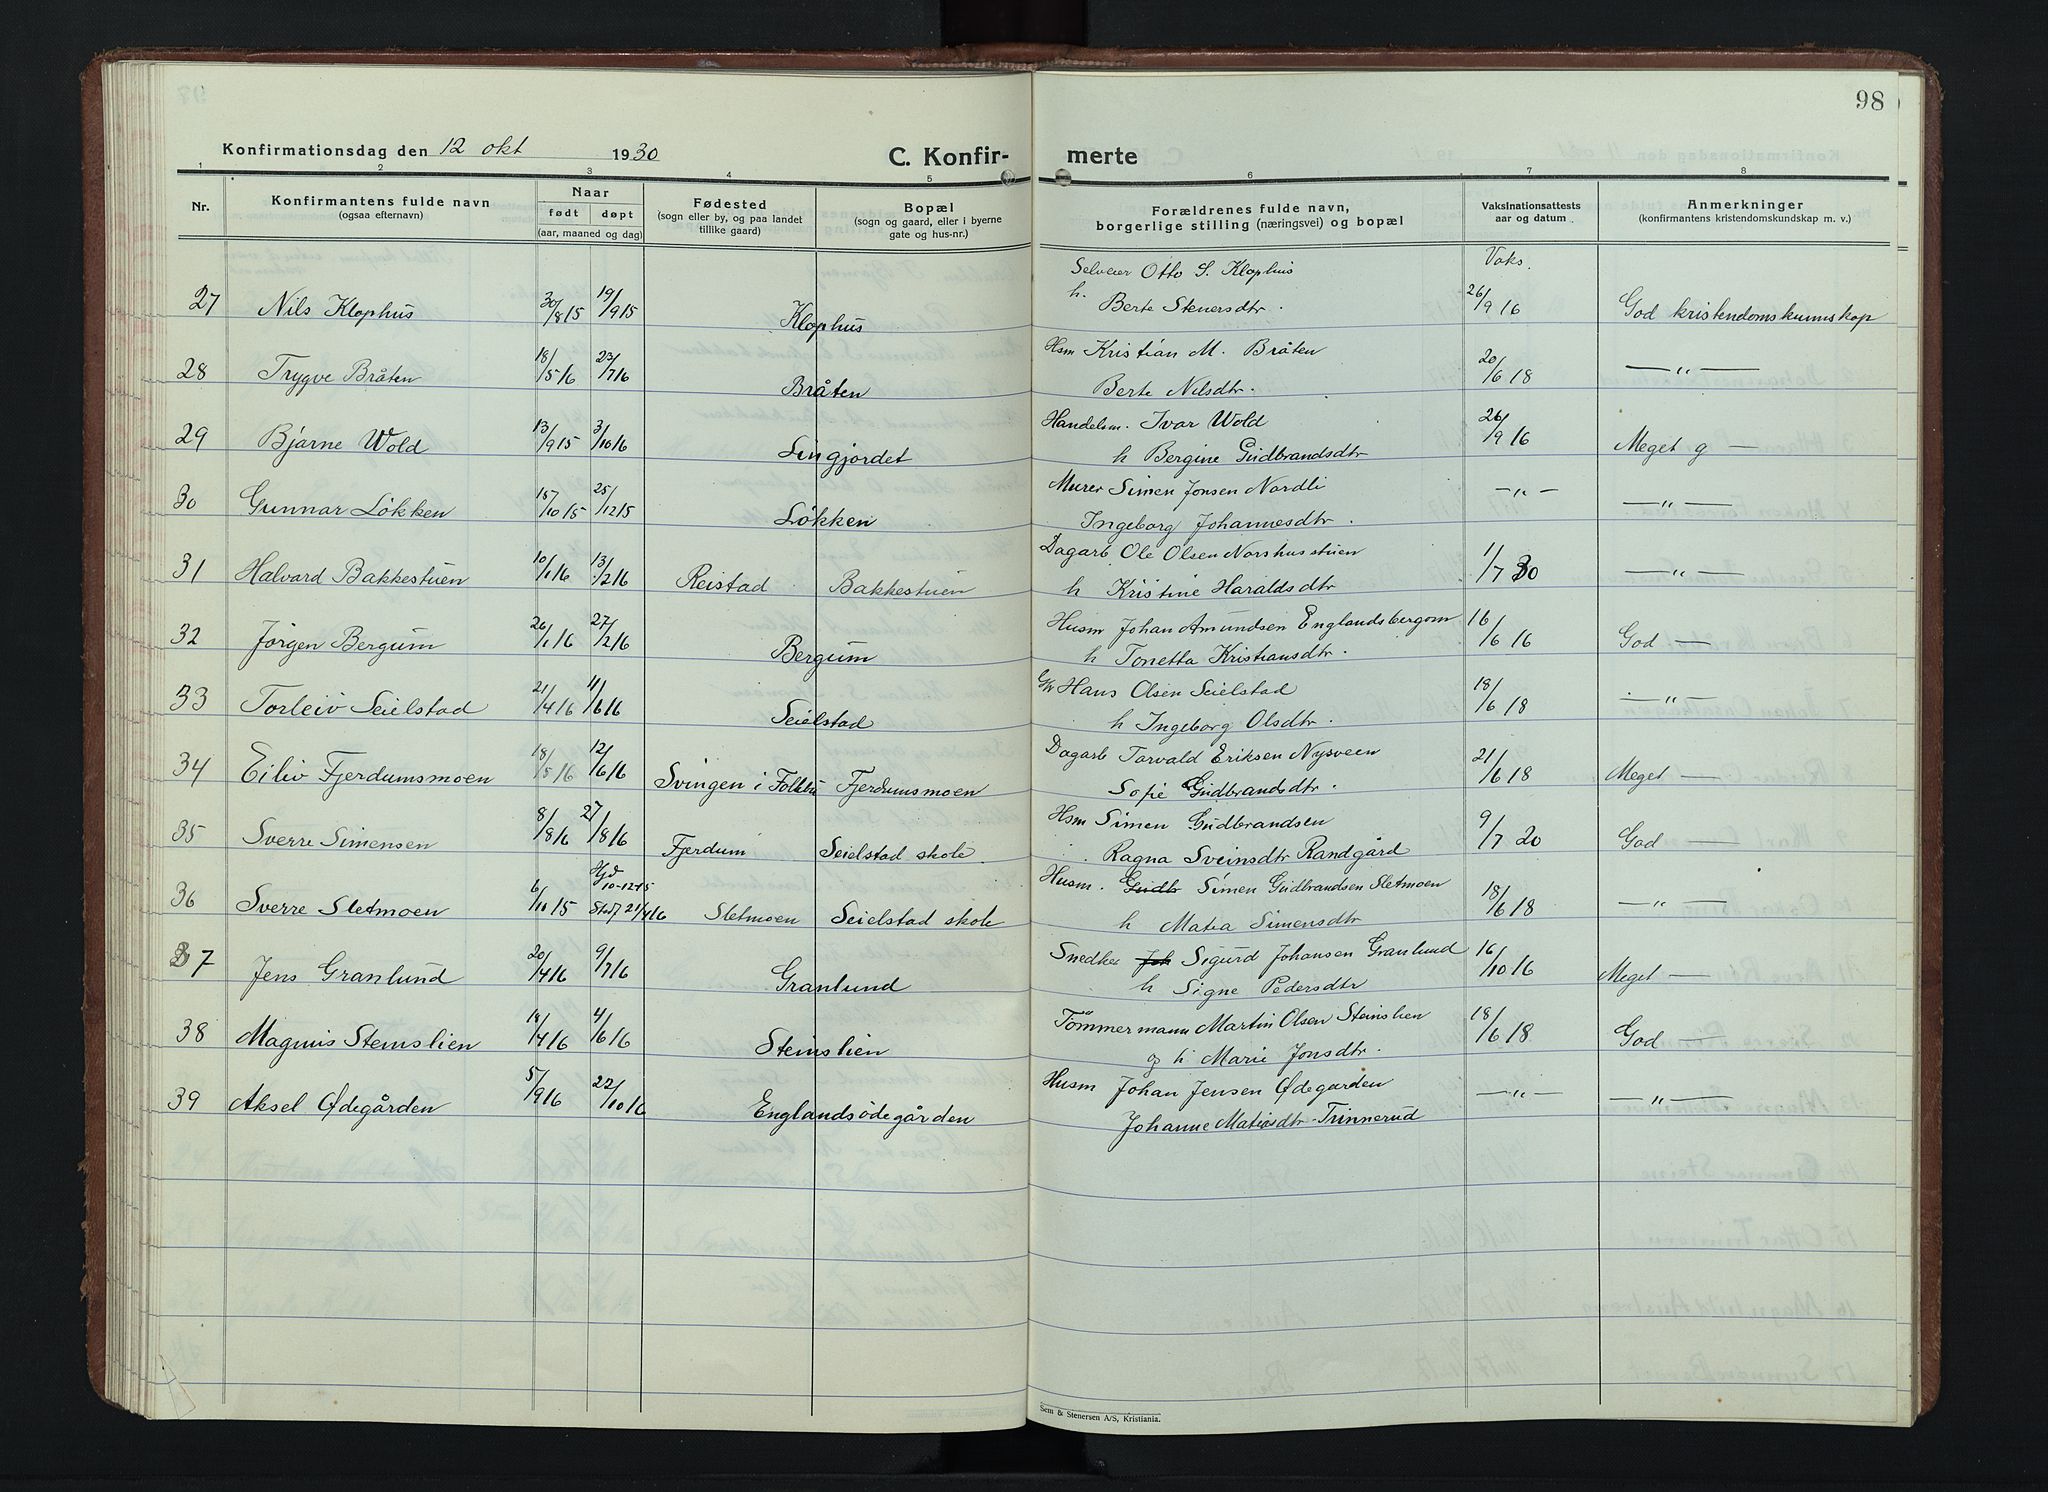 98
Konfirmationsdag den 12 okt 1930 C. Konfir- merte
1 2 3 4 5 6 7 8
Nr. Konfirmantens fulde navn (ogsaa efternavn) Naar født døpt (aar, maaned og dag) Fødested (sogn eller by, og paa landet tillike gaard) Bopæl (sogn og gaard, eller i byerne gate og hus-nr.) Forældrenes fulde navn, borgerlige stilling (næringsvei) og bopæl Vaksinationsattests aar og datum Anmerkninger (konfirmantens kristendomskundskap m. v.)
Selveier Otto S. Klophus Vaks.
27 Nils Klophus 30/8 15 19/9 15 Klophus h. Berte Stenersdtr. 26/9 16 God kristendomskunnskap
Hsm Kristian M. Bråten
28 Trygve Bråten 18/5 16 23/7 16 Bråten Berte Nilsdtr. 20/6 18 —„—
Handelsm. Ivar Wold
29 Bjarne Wold 13/9 15 3/10 16 Lingjordet h Bergine Gudbrandsdtr 26/9 16 Meget g —
Murer Simen Jonsen Nordli
30 Gunnar Løkken 15/10 15 25/12 15 Løkken Ingeborg Johannesdtr. —„— —„—
Dagarb Ole Olsen Norshusstuen
31 Halvard Bakkestuen 10/1 16 13/2 16 Reistad Bakkestuen h Kristine Haraldsdtr 1/7 30 —„—
Husm Johan Amundsen Englandsbergom
32 Jørgen Bergum 26/1 16 27/2 16 Bergum h Tonetta Kristiansdtr. 16/6 16 God —
Hans Olsen Seielstad
33 Torleiv Seielstad 21/4 16 11/6 16 Seielstad h Ingeborg Olsdtr. 18/6 18 —„—
Dagarb Torvald Eriksen Nysveen
34 Eiliv Fjerdumsmoen 18/5 16 12/6 16 Svingen i Follebu Fjerdumsmoen Sofie Gudbrandsdtr. 21/6 18 Meget —
Hsm Simen Gudbrandsen
35 Sverre Simensen 8/8 16 27/8 16 Fjerdum Seielstad skole. Ragna Sveinsdtr Randgård 9/7 20 God —
Husm. Gudb Simen Gudbrandsen Sletmoen
36 Sverre Sletmoen 6/10 15 Hjd 10-12-15 Stadf 21/4 16 Sletmoen Seielstad skole h Matea Simensdtr. 18/6 18 —„—
Snedker Joh Sigurd Johansen Granlund
37 Jens Granlund 20/4 16 9/7 16 Granlund h Signe Pedersdtr 16/10 16 Meget —
Tömmermann Martin Olsen Steinslien
38 Magnus Steinslien 18/4 16 4/6 16 Steinslien og h Marie Jonsdtr. 18/6 18 God —
Husm Johan Jensen Ødegarden
39 Aksel Ødegården 5/9 16 22/10 16 Englandsödegården Johanne Matiasdtr Trinnerud —„— —„—
Sem & Stenersen A/S, Kristiania.